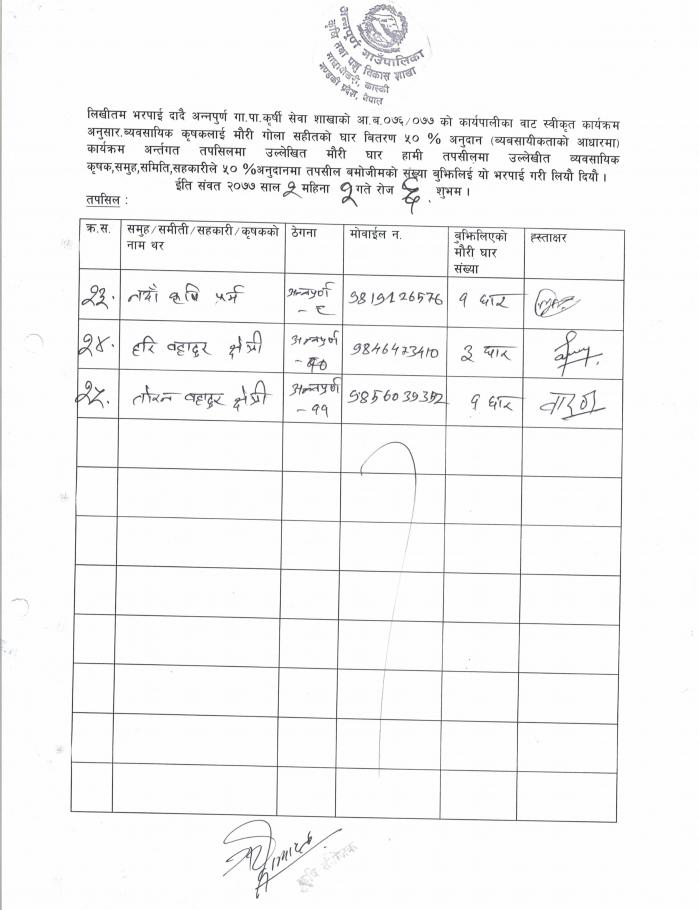 अन्नपूर्ण गाउँपालिका
कृषि तथा पशु विकास शाखा
कास्की
गण्डकी प्रदेश, नेपाल
लिखीतम भरपाई दादै अन्नपुर्ण गा.पा.कृर्षी सेवा शाखाको आ.ब.०७६/०७७ को कार्यपालीका वाट स्वीकृत कार्यक्रम
अनुसार,ब्यवसायिक कृषकलाई मौरी गोला सहीतको घार बितरण ५० % अनुदान (ब्यवसायीकताको आधारमा)
कार्यक्रम अर्न्तगत तपसिलमा उल्लेखित मौरी घार हामी तपसीलमा उल्लेखीत व्यवसायिक
कृषक,समुह,समिति,सहकारीले ५० %अनुदानमा तपसील बमोजीमको संख्या बुझिलिई यो भरपाई गरी लियौ दियौ ।
ईति संवत २०७७ साल २ महिना २ गते रोज ६ . शुभम ।
तपसिल :
क्र.स. समुह/समीती/सहकारी/कृषकको नाम थर ठेगना मोवाईल न. बुझिलिएको मौरी घार संख्या ह्स्ताक्षर
२३. नयाँ कृषि फर्म अन्नपुर्ण - ८ 9819126576 १ घार
२४. हरि बहादुर क्षेत्री अन्नपुर्ण - १० 9846473410 ३ घार
२५. तोरन बहादुर क्षेत्री अन्नपुर्ण - ११ 9856039352 १ घार